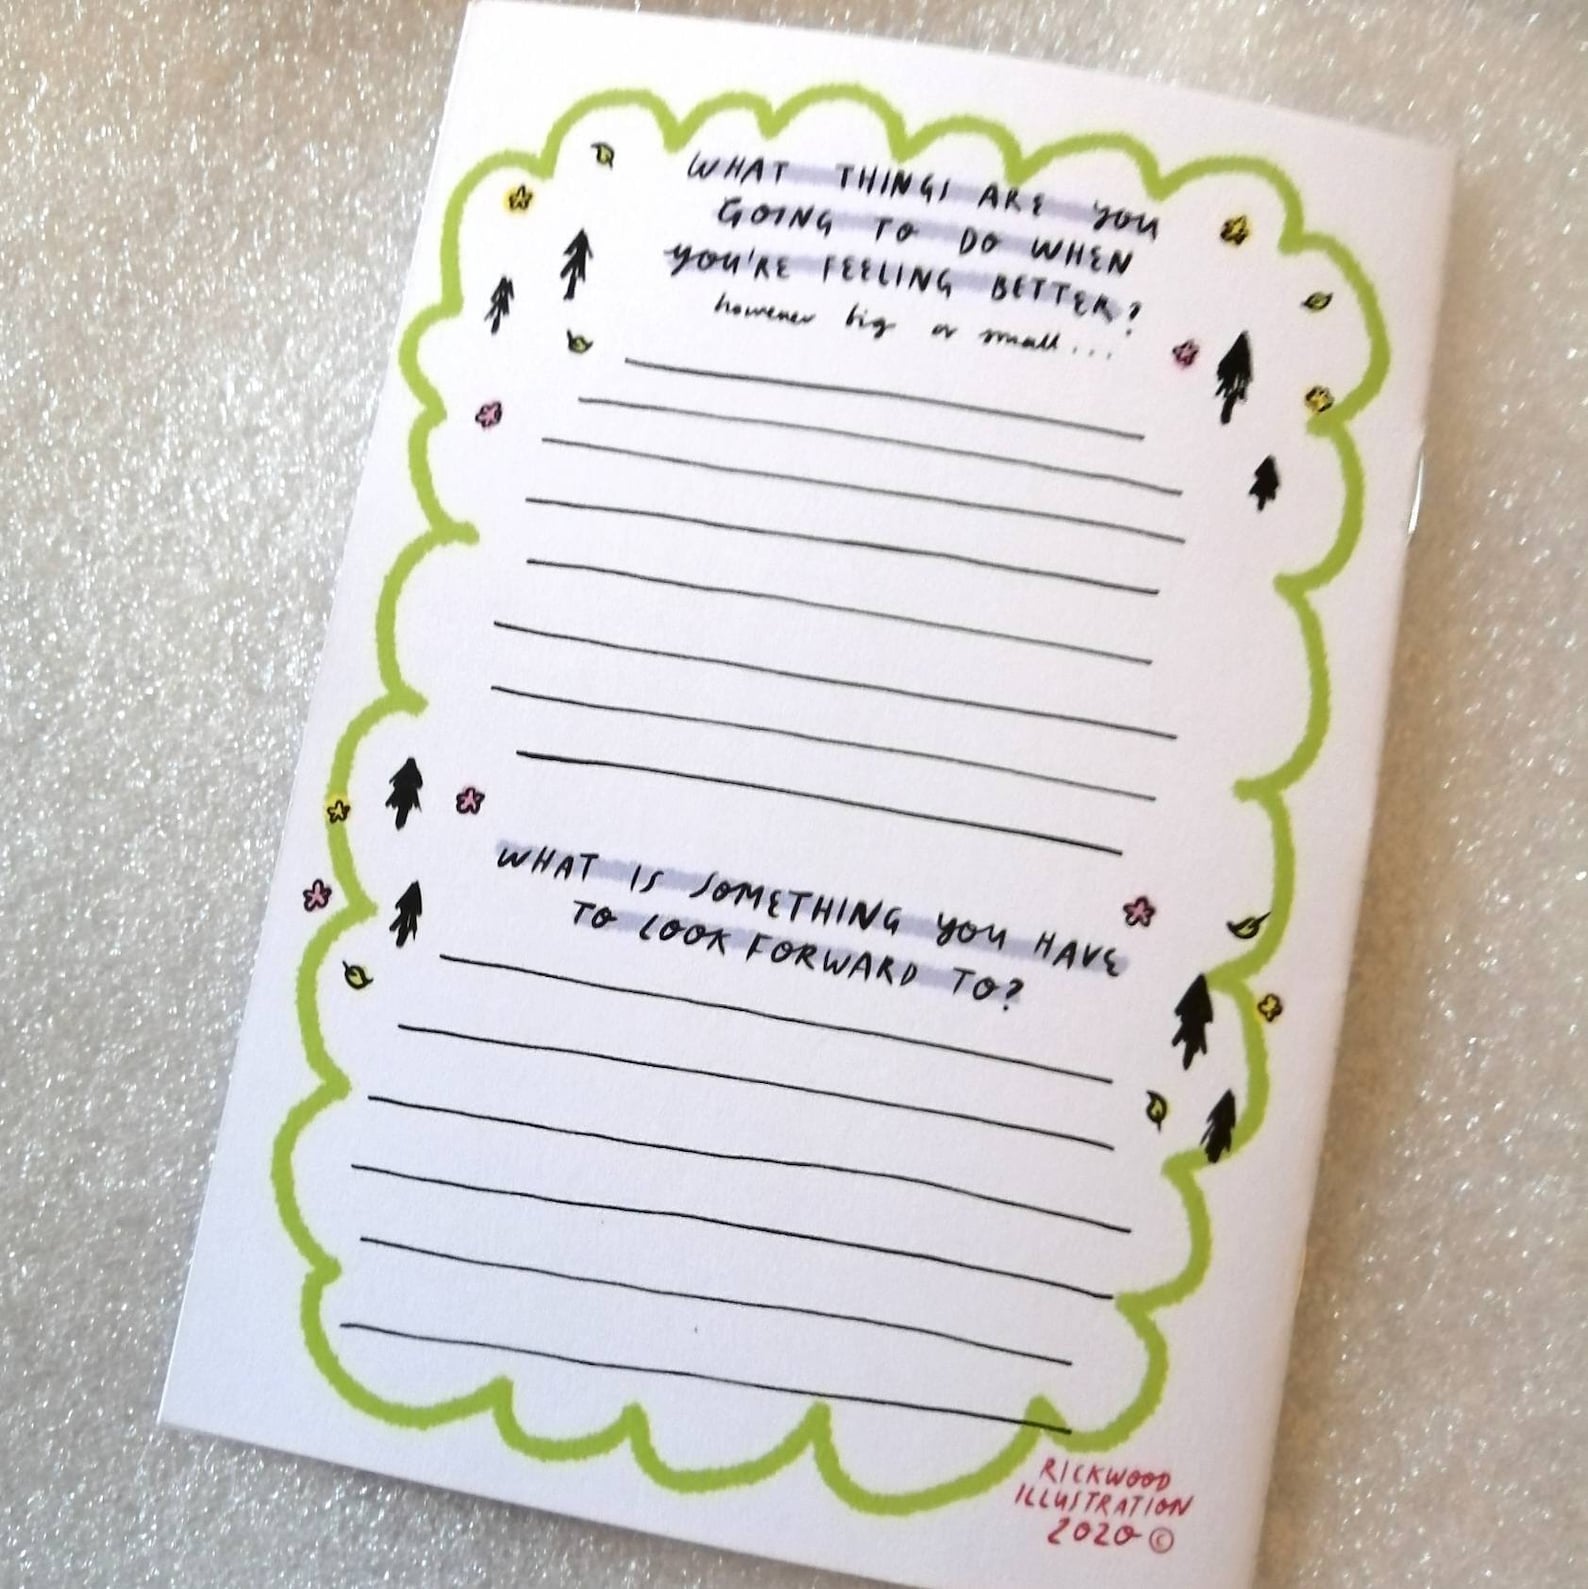 WHAT THINGS ARE YOU
GOING TO DO WHEN
YOU'RE FEELING BETTER?
however big or small...
WHAT IS SOMETHING YOU HAVE
TO LOOK FORWARD TO?
RICKWOOD
ILLUSTRATION
2020 ©